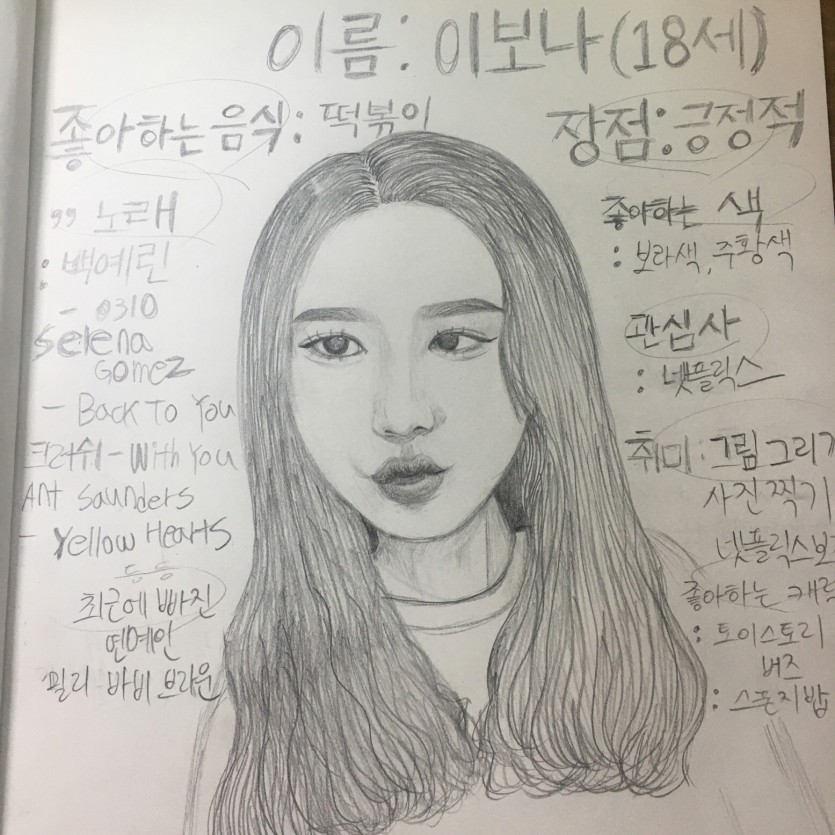 이름: 이보나 (18세)
좋아하는 음식: 떡볶이
장점: 긍정적
99 노래
: 백예린
- 0310
Selena
Gomez
- Back To You
크러쉬 - With You
Ant Saunders
- Yellow Hearts
등등
최근에 빠진
연예인
밀리 바비 브라운
좋아하는 색
: 보라색, 주황색
관심사
: 넷플릭스
취미: 그림그리기
사진찍기
넷플릭스보
좋아하는 캐릭
: 토이스토리
버즈
: 스폰지밥